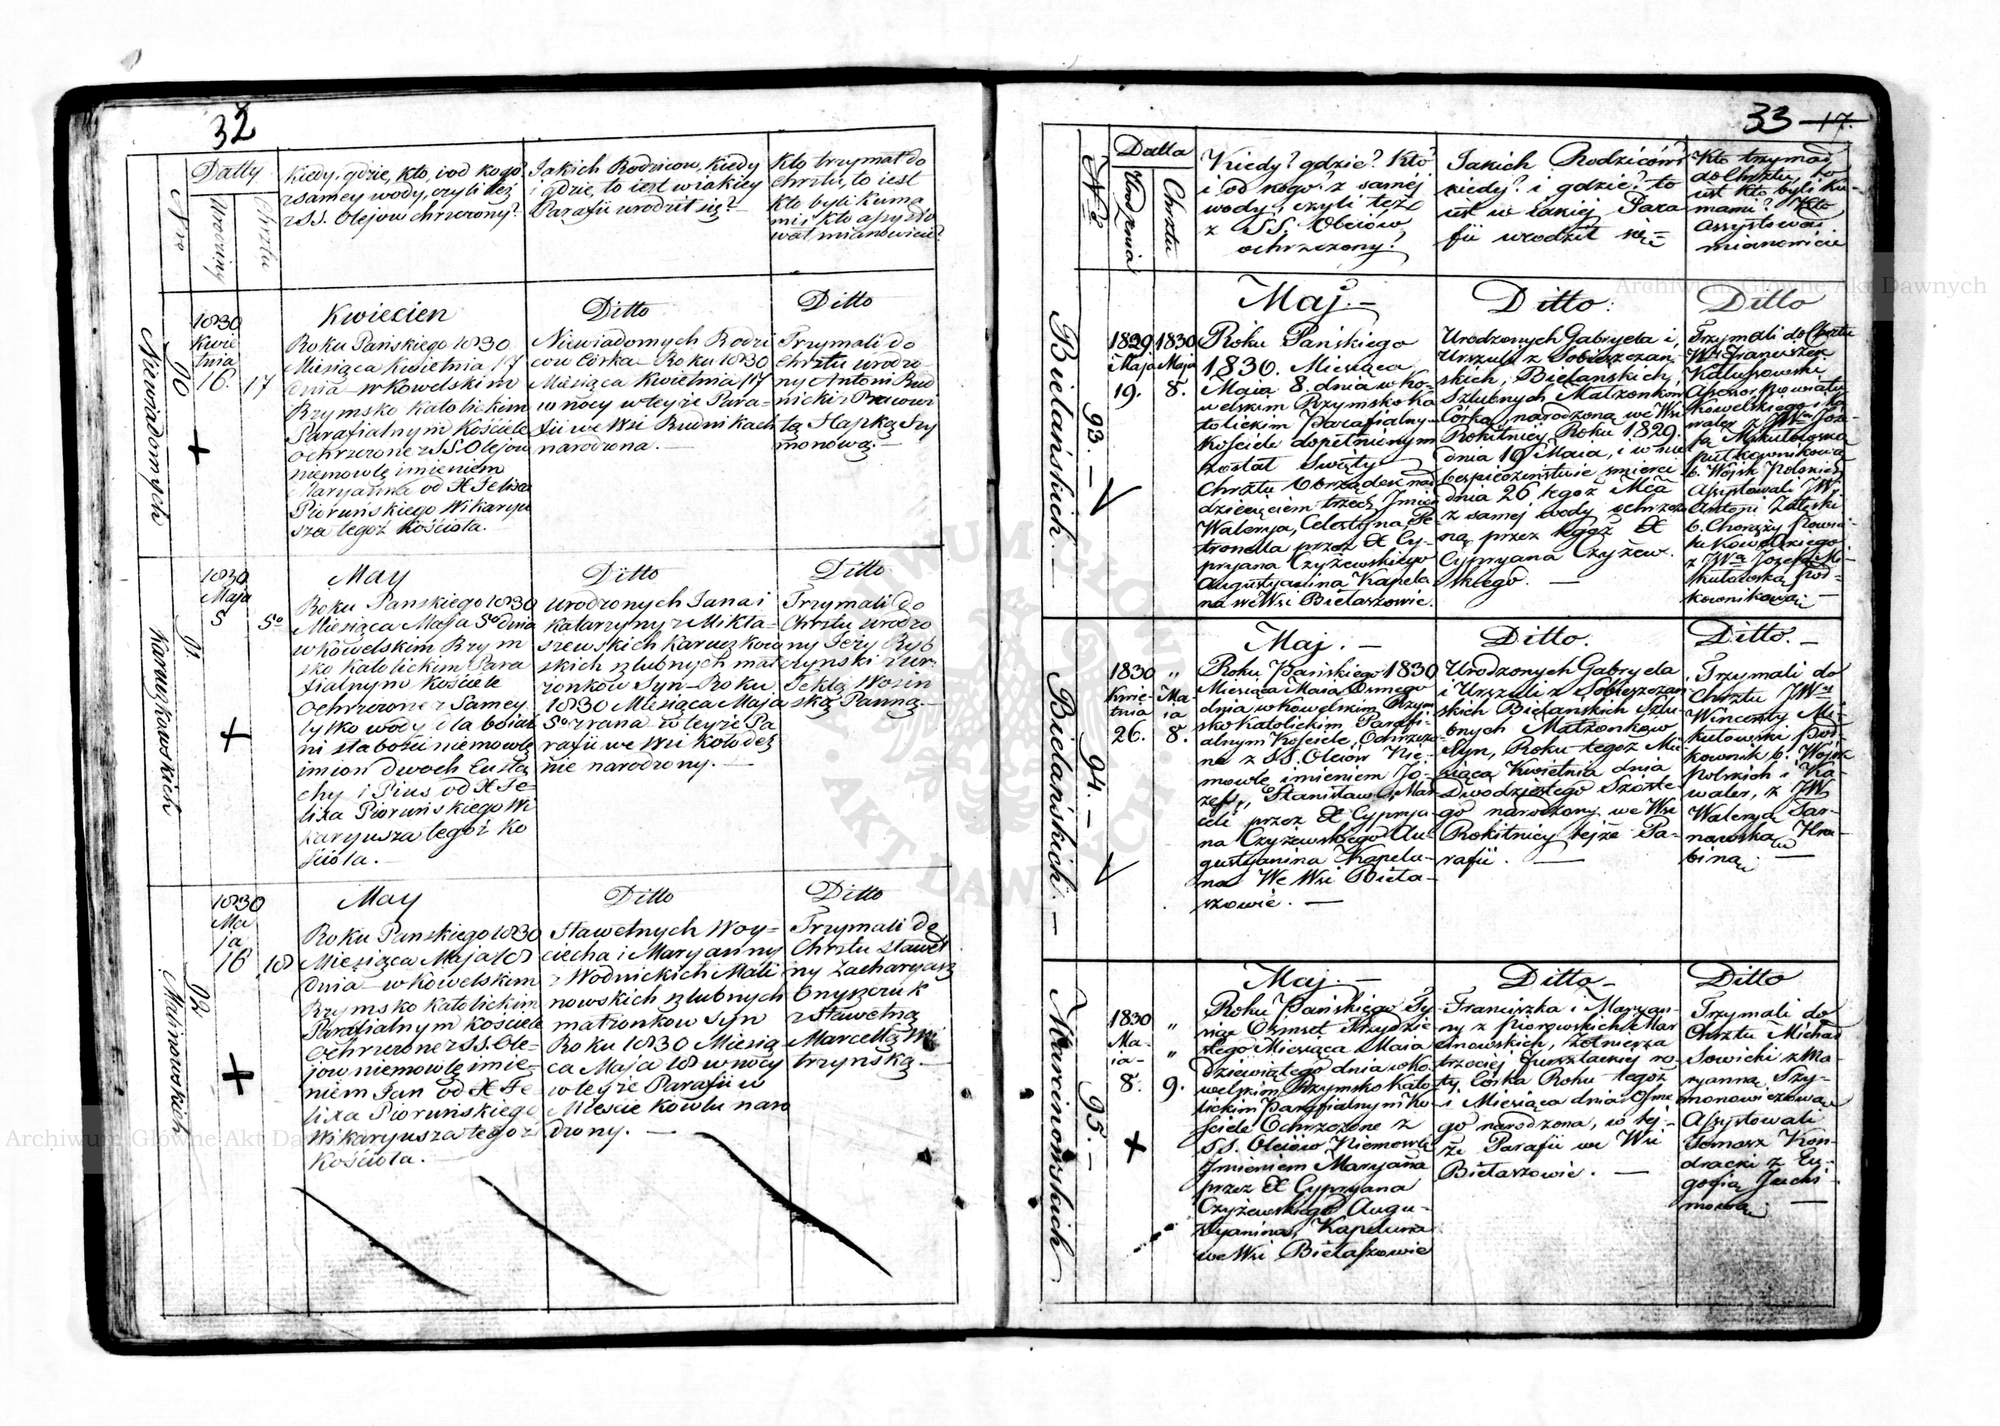 32
Datty
Nro
Urodziny
Chrztu
Kiedy, gdzie, kto, i od kogo?
z samey wody, czyli też
z S.S. Olejow chrzczony?
Jakich Rodzicow, kiedy
i gdzie, to iest w iakiey
Parafii urodził się?
Kto trzymał do
chrztu, to iest
kto byli kuma
mi i kto assysto
wał mianowicie?
Niewiadomych
90
1830
Kwie
tnia
16.
17
Kwiecien
Roku Pańskiego 1830
Miesiąca Kwietnia 17
dnia w Kowelskim
Rzymsko Katolickim
Parafialnym Kościele
ochrzczone z SS. Olejow
niemowlę imieniem
Maryanna od X Felixa
Pioruńskiego Wikaryu
sza tegoż Kościoła.
Ditto
Niewiadomych Rodzi
cow Córka Roku 1830
Miesiąca Kwietnia 17
w nocy w teyże Para-
fii we Wsi Rudnikach
narodzona. —
Ditto
Trzymali do
chrztu urodzo
ny Antoni Rud
nicki z Pracowi
tą Hapką Szy
monową. —
Karaczkowskich
91
1830
Maja
5
5º
May
Roku Panskiego 1830
Miesiąca Maja 5º dnia
w Kowelskim Rzym
sko Katolickim Para
fialnym Kościele
Ochrzczone z Samey
tylko wody dla boiaź
ni słabości niemowlę
imion dwoch Eusta
chy i Pius od X Fe-
lixa Pioruńskiego Wi
karyusza tegoż Ko
ścioła. —
Ditto
Urodzonych Jana i
Katarzyny z Mikła-
szewskich
skich szlubnych mał
żonków Syn Roku
1830 Miesiąca Maja
5º z rana w teyże Pa
rafii we Wsi Kołodeż
nie narodzony. —
Ditto
Trzymali do
Chrztu Urodzo
ny Jerzy Ryb
czynski z Ur:
Teklą Wosin
ską Panną. —
Malinowskich
92
1830
Ma
ja
16
18
May
Roku Panskiego 1830
Miesiąca Maja 18
dnia w Kowelskim
Rzymsko Katolickim
Parafialnym Kościele
Ochrzczone z S.S. Ole-
jow niemowlę imie-
niem Jan od X Fe
lixa Pioruńskiego
Wikaryusza tegoż
Kościoła. —
Ditto
Sławetnych Woy-
ciecha i Maryanny
z Wodnickich Mali
nowskich szlubnych
małżonkow Syn
Roku 1830 Miesią
ca Maja 18 w nocy
w teyże Parafii w
Mieście Kowlu naro
dzony. —
Ditto
Trzymali do
Chrztu sławet
ny Zacharyasz
Onyszczuk
z sławetną
Marcellą Wi
trzynską. —
33
17.
Nro
Datta
Urodzenia
Chrztu
Kiedy? gdzie? Kto
i od kogo? z saméj
wody, czyli też
z SS. Oleiów
ochrzczony?
Jakich Rodziców?
kiedy? i gdzie? to
iest w iakiéj Para
fii urodził się =
Kto trzymał
do Chrztu, to
iest kto byli Ku-
mami? Kto
assystował
mianowicie
Bielańskich. —
93. —
1829
Maja
19.
1830
Maja
8.
Maj. —
Roku Pańskiego
1830. Miesiąca
Maia 8. dnia w Ko-
welskim Rzymsko Ka
tolickim Parafialny-
Kościele dopełnionym
został Swięty
Chrztu Obrządek nad
dziecięciem trzech Jmion
Walerya, Celestyna, Pe-
tronella przez X Cy-
pryana Czyżewskiego
Augustyanina Kapela
na we Wsi Bielaszowie.
Ditto.
Urodzonych Gabryela i,
Urszuli z Sobieszczań
skich, Bielanskich,
Szlubnych Małżonkow
Córka, narodzona we Wsi
Rokitnicy Roku 1829.
dnia 19 Maia, i w nie
bespieczeństwie smierci
dnia 26 tegoż Mca
z samej wody ochrzczo
ną przez tegoż X
Cypryana Czyżew-
skiego. —
Ditto
Trzymali do Chrztu
Kowelskiego i Ka
waler z JWą Józe
fą Mikułowską
b. Wojsk Polskich
Assystowali JW.
Antoni Zaleski
b. Chorąży Powia-
tu Kowelskiego
z JWą Józefą Mi-
kułowską Pod-
Bielańskich. —
94. —
1830
Kwie-
tnia
26.
"
Ma-
ia
8.
Maj. —
Roku Pańskiego 1830
Miesiąca Maia Osmego
dnia w Kowelskim Rzym
sko Katolickim Parafi-
alnym Kościele, Ochrzczo-
na z SS. Oleiów Nie-
mowle imieniem Jó-
zef, Stanisław, Mar
celi przez X Cyprya-
na Czyżewskiego Au-
gustyanina Kapela-
na We Wsi Biela-
szowie. —
Ditto.
Urodzonych Gabryela
i Urszuli z Sobieszczań
skich Bielanskich Szlu-
bnych Małżonkow
Syn, Roku tegoż Mie
siąca Kwietnia dnia
Dwodziestego Szóste
go narodzony we Wsi
Rokitnicy tejże Pa-
rafii. —
Ditto. —
Trzymali do
Chrztu JW
Wincenty Mi-
kułowski Pod-
kownik b. Wojsk
Polskich i Ka-
waler, z JW
Walerją Tar-
nawską Hra-
biną. —
Marcinowskich
95. —
1830
Ma-
ia-
8.
"
"
9.
Maj. —
Roku Pańskiego Ty-
siąc Osmset Trzydzie
stego Miesiąca Maia
Dziewiątego dnia w Ko-
welskim Rzymsko Kato-
lickim Parafialnym Ko-
ściele Ochrzczone z
SS. Oleiów Niemowle
Jmieniem Maryanna
przez X Cypryana
Czyżewskiego Augu-
styanina, Kapelana
we Wsi Bielaszowie
Ditto —
Franciszka i Maryan-
ny z Piorowskich Mar
cinowskich, Żołnierza
trzeciej Jnwalackiej ro
ty, Córka Roku tegoż
i Miesiąca dnia Osme
go narodzona, w tej-
że Parafii we Wsi
Bielaszowie. —
Ditto
Trzymali do
Chrztu Michał
Sowicki z Ma-
ryanną Szy-
monowiczową
Assystowali
Tomasz Kon-
dracki z Eu-